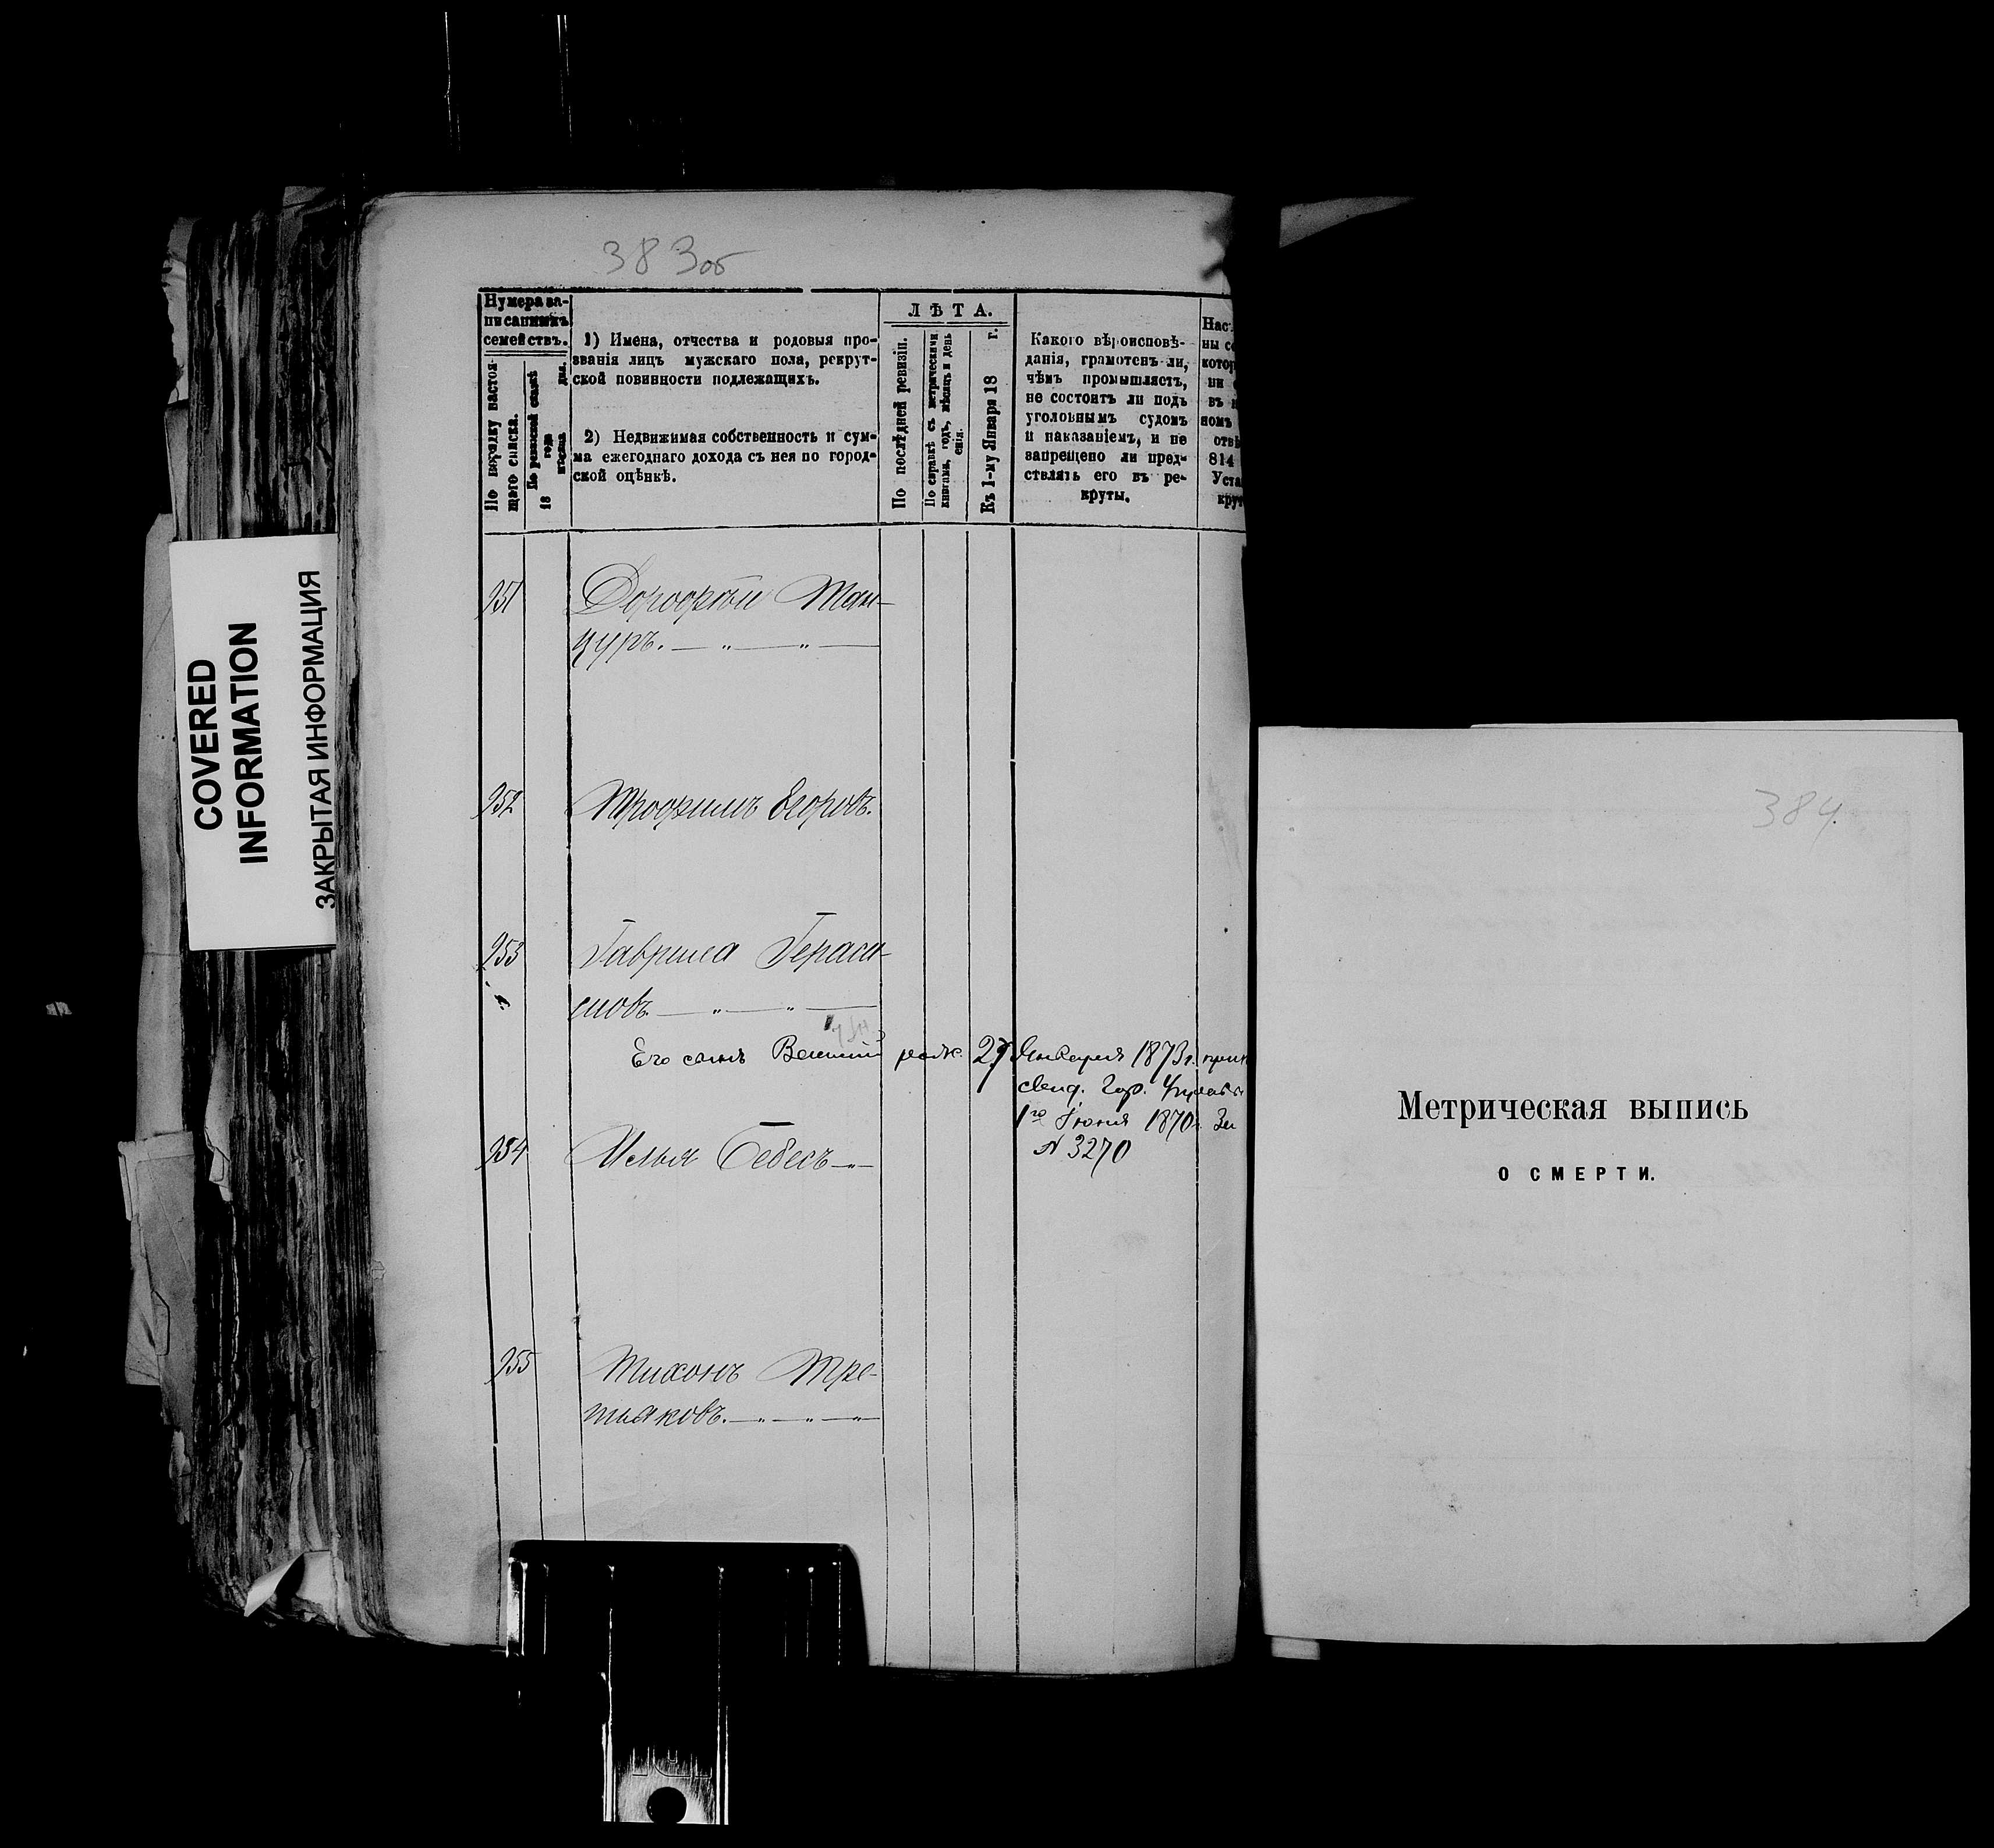 COVERED
INFORMATION
ЗАКРЫТАЯ ИНФОРМАЦИЯ
383об
Нумера за-
писанныхъ
семействъ.
По порядку настоя-
щаго списка.
По ревизской сказкѣ
18 года
мѣсяца дня.
1) Имена, отчества и родовыя про-
званія лицъ мужскаго пола, рекрут-
ской повинности подлежащихъ.
2) Недвижимая собственность и сум-
ма ежегоднаго дохода съ нея по город-
ской оцѣнкѣ.
ЛѢТА.
По послѣдней ревизіи.
По справкѣ съ метрическими
книгами, годъ, мѣсяцъ и день
Къ 1-му Января 18 г.
Какого вѣроисповѣ-
данія, грамотенъ ли,
чѣмъ промышляетъ,
не состоитъ ли подъ
уголовнымъ судомъ
и наказаніемъ, и не
запрещено ли пред-
ставлять его въ ре-
круты.
Нас
ны со
котор
ни
въ
номъ
отвѣ
814
Уста
крут
951 Дорофѣй Ман-
цуръ.
952 Трофимъ Егоровъ.
953 Гаврила Гераси-
мовъ
Его сынъ Василій родж. 27 Января 1873 г. прип
свид. Гор. Управы
1го Іюня 1870 г. За
954 Илья Бебесъ
N 3270
955 Тихонъ Тре-
тьяковъ.
384.
Метрическая выпись
О СМЕРТИ.